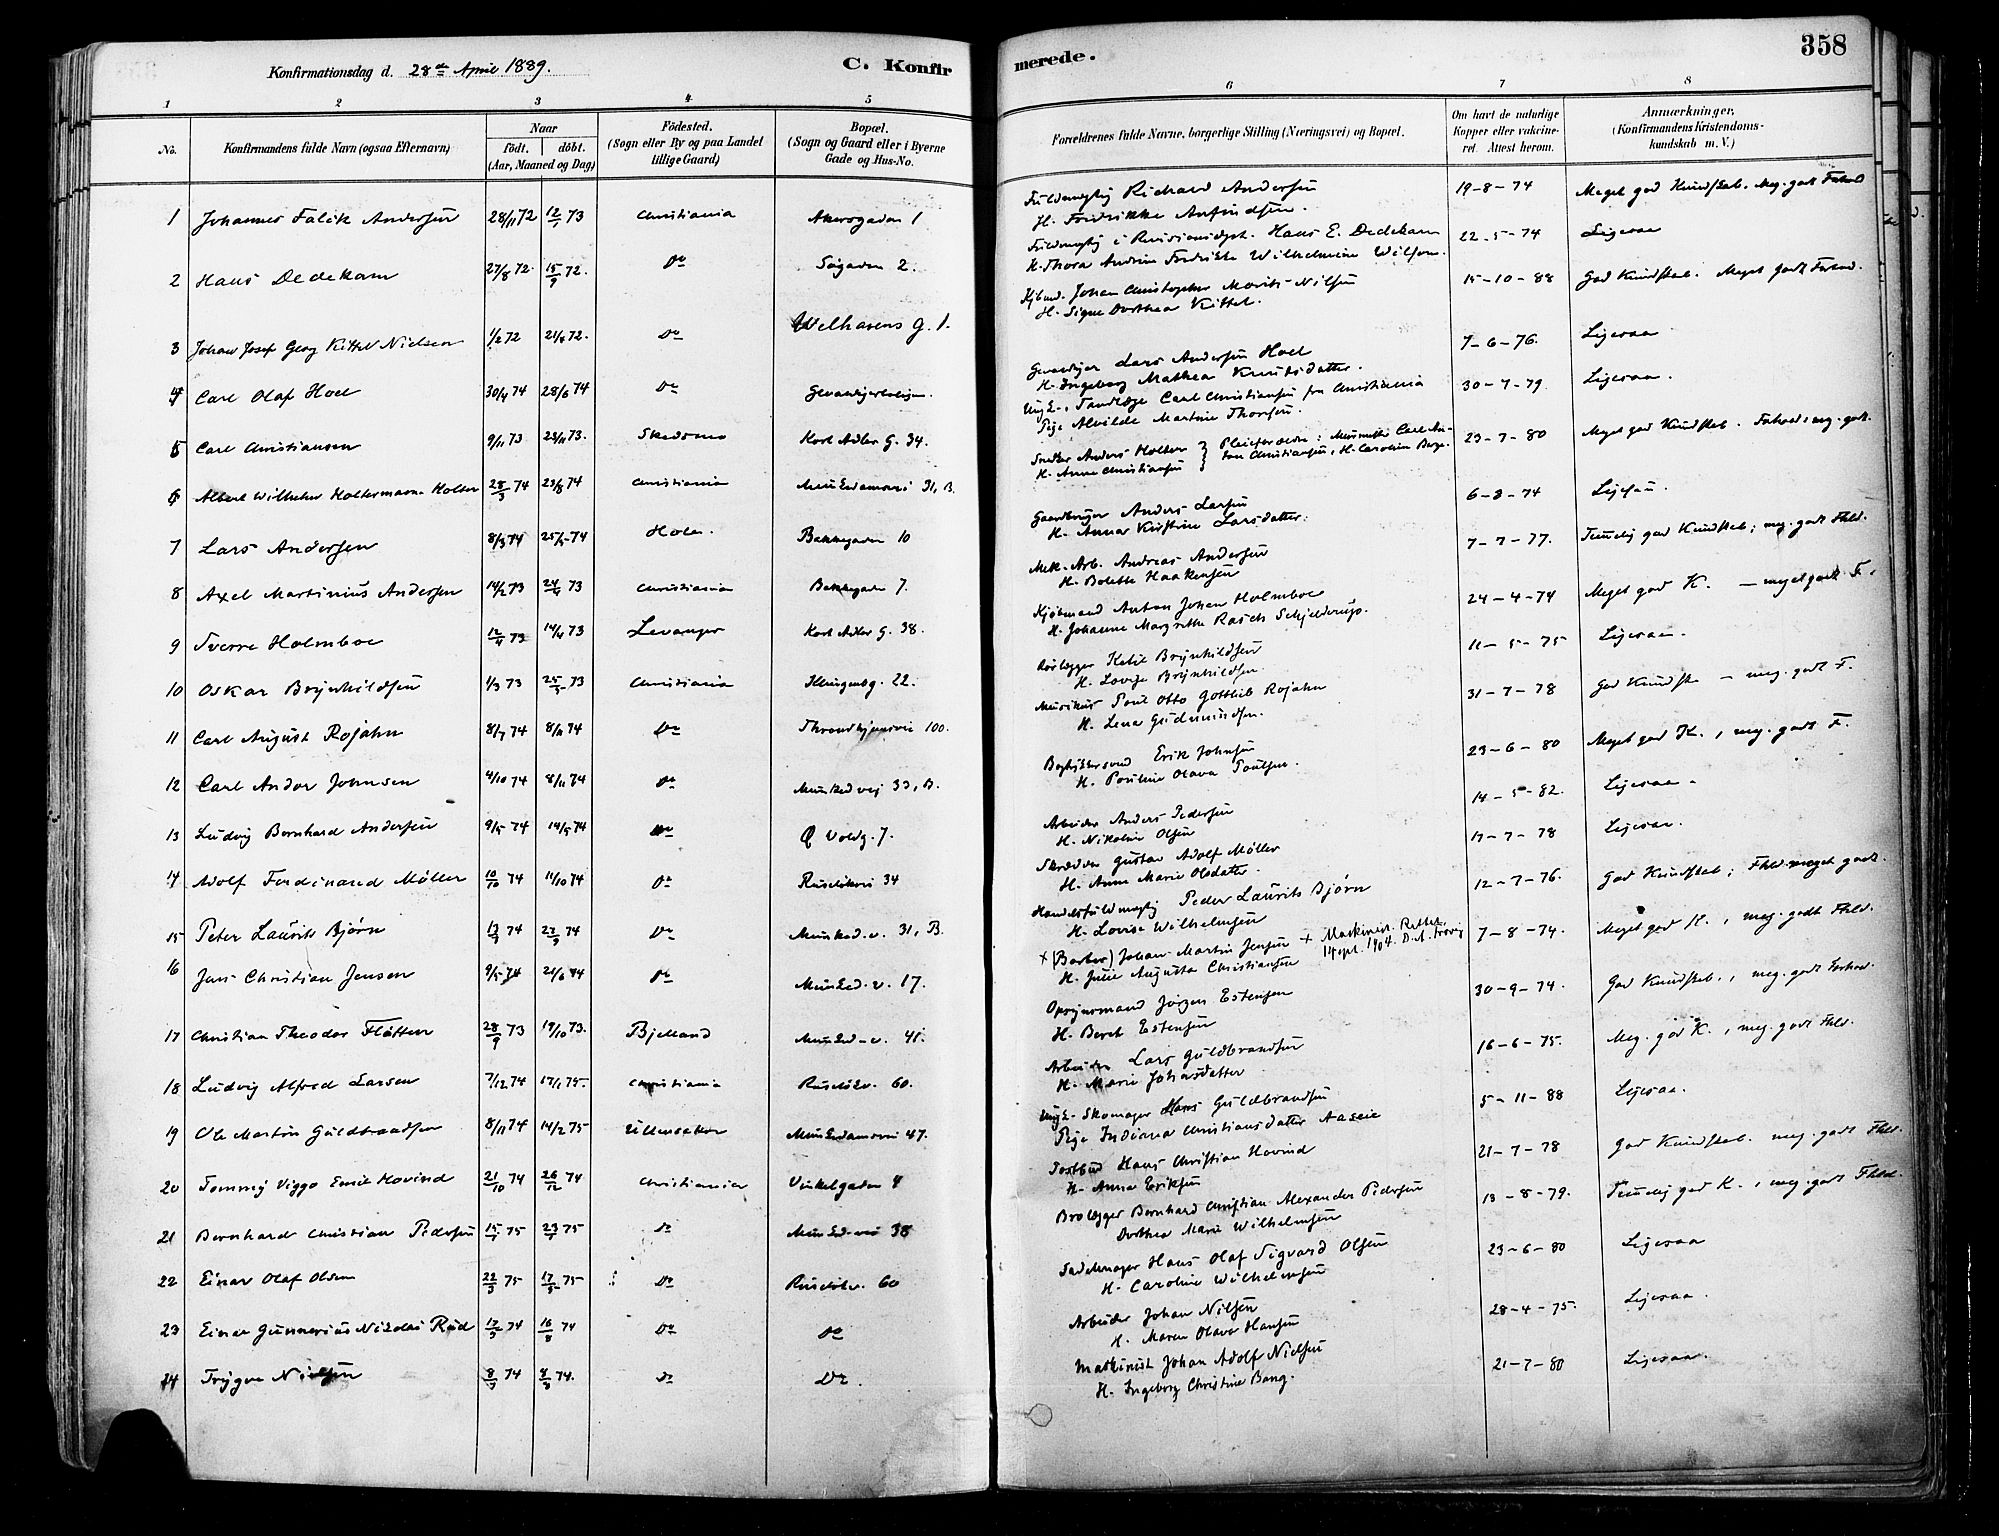 358
Konfirmationsdag d. 28de April 1889.
C. Konfirmerede.
1 2 3 4 5 6 7 8
No.
Konfirmandens fulde Navn (ogsaa Efternavn)
Naar
födt. döbt.
(Aar, Maaned og Dag)
Födested.
(Sogn eller By og paa Landet tillige Gaard)
Bopæl.
(Sogn og Gaard eller i Byerne Gade og Hus-No.
Forældrenes fulde Navne, borgerlige Stilling (Næringsvei) og Bopæl.
Om havt de naturlige Kopper eller vakcineret. Attest herom.
Anmærkninger.
(Konfirmandens Kristendomskundskab m. V.)
1 Johannes Falck Andersen 28/11 72 12/1 73 Christiania Akersgaden 1
Fuldmægtig Richard Andersen
H. Fredrikke Anfindsen.
19-8-74 Meget god Kundskab. Meg. godt Forhold
2 Hans Dedekam 27/8 72. 15/9 72. Do Søgaden 2.
Fuldmægtig i Revisionsdept. Hans E. Dedekam
H. Thora Andrine Fredrikke Wilhelmine Wilson.
22-5-74 Ligesaa
3 Johan Josef Georg Kittel Nielsen 1/2 72 21/8 72. Do Welhavens G. 1.
Kjbmd. Johan Christopher Morits Nilsen
H. Signe Dorthea Kittel.
15-10-88 God Kundskab. Meget godt Forhod.
4 Carl Olaf Hoel 30/4 74 28/6 74 Do
Lars Andersen Hoel
H. Ingeborg Mathea Knutsdatter.
7-6-76. Ligesaa
5 Carl Christiansen 9/11 73 23/11 73. Skedsmo Kort Adler G. 34.
Ung-k., Tandlæge Carl Christiansen fra Christiania
Pige Alvilde Martine Thorsen.
30-7-79. Ligesaa.
6 Albert Wilhelm Holtermann Holter 28/3 74 23/8 74 Christiania Munkedamsvei 31, B.
Snedker Anders Holter
H. Anne Christiansen
Pleieforældre: Carl Anton Christiansen, H. Caroline Berge.
23-7-80 Meget god Kundskab. Forhold: meg. godt.
7 Lars Andersen 8/3 74 25/5 74 Hole. Bakkegaden 10
Gaardbruger Anders Larsen
H. Anna Kirstine Larsdatter.
6-3-74 Ligesaa.
8 Axel Martinius Andersen 14/2 73 24/4 73 Christiania Bakkegaden 7.
Mek. Arb. Andreas Andersen
H. Bolette Haakensen
7-7-77. Temmelig god Kundskab; meg. godt Fhld.
9 Sverre Holmboe 12/4 73 14/4 73 Levanger Kort Adler G. 38.
Kjøbmand Anton Johan Holmboe
H. Johanne Margrethe Rasch Schjelderup.
24-4-74 Meget god K. — meget godt F.
10 Oskar Brynhildsen 1/3 73 25/5 73 Christiania Klingenbg. 22.
Rørlægger Ketil Brynhildsen
H. Lovise Brynhildsen.
11-5-75 Ligesaa.
11 Carl August Rojahn 8/7 74 8/11 74 Do Throndhjemsvei 100.
Musikus Poul Otto Gottlieb Rojahn
H. Lena Gudmundsen.
31-7-78 God Kundska — meg. godt F.
12 Carl Andor Johnsen 4/10 74 8/11 74 Do Munkedvej 33, B.
Erik Johnsen
H. Pouline Olava Poulsen.
23-6-80 Meget god K., meg. godt F.
13 Ludvig Bernhard Andersen 9/5 74 14/5 74 Do Ø Voldg. 7.
Arbeider Anders Pedersen
H. Nikoline Olsen
14-5-82. Ligesaa.
14 Adolf Ferdinand Möller 10/10 74 11/10 74 Do Ruseløkvei 34
Skrædder Gustav Adolf Möller
H. Anne Marie Olsdatter.
17-7-78 Ligesaa.
15 Peter Laurits Bjørn 13/9 74 27/9 74 Do Munked. v. 31, B.
Handelsfuldmægtig Peder Laurits Bjørn
H. Lovise Wilhelmsen
12-7-76. God Kundskab; Fhld. meget godt.
16 Jens Christian Jensen 9/5 74 21/6 74 Do Munked. v. 17.
+ (Barber) Johan Martin Jensen + Maskinist. Rettet 14 sept. 1904. D. A.
H. Julie Augusta Christiansen
7-8-74. Meget god K., meg. godt Fhld.
17 Christian Theodor Flåtten 28/9 73 19/10 73. Bjelland Munked-v. 41.
Opsynsmand Jörgen Estensen
H. Beret Estensen
30-9-74. God Kundskab., meg. godt Forhod.
18 Ludvig Alfred Larsen 7/12 74 17/1 75 Christiania Ruseløkv. 60.
Arbeider Lars Guldbrandsen
H. Marie Johnsdatter
16-6-75. Meg. god K., meg. godt Fhld.
19 Ole Martin Guldbrandsen 8/11 74 14/2 75 Ullensaker Munkedamsvei 47.
Ung-k. Skomager Hans Guldbrandsen
Pige Indiana Christiansdatter Aaseie
5-11-88 Ligesaa.
20 Tommy Viggo Emil Hovind 21/10 74 26/12 74 Christiania Vinkelgaden 4
Postbud Hans Christian Hovind
H. Anna Eriksen
21-7-78 God Kundskab. meg. godt Fhld.
21 Bernhard Christian Pedersen 15/1 75 23/7 75 Do Munked-vei 38
Brolægger Bernhard Christian Alexander Pedersen
Dorthea Marie Wilhelmsen
13-8-79. Temmelig god K., meg. godt Fhld.
22 Einar Olaf Olsen 22/3 75 17/5 75 Do Ruseløkv. 60
Sadelmager Hans Olaf Sigvard Olsen
H. Caroline Wilhelmsen
23-6-80 Ligesaa
23 Einar Gunnerius Nikolai Rud 17/3 74 16/8 74 Do Do
Arbeider Johan Nilsen
H. Maren Olava Hansen
28-4-75. Ligesaa
24 Trygve Nielsen 8/3 74 4/3 74. Do Do.
Maskinist Johan Adolf Nielsen
H. Ingeborg Christine Bang.
21-7-80 Ligesaa.